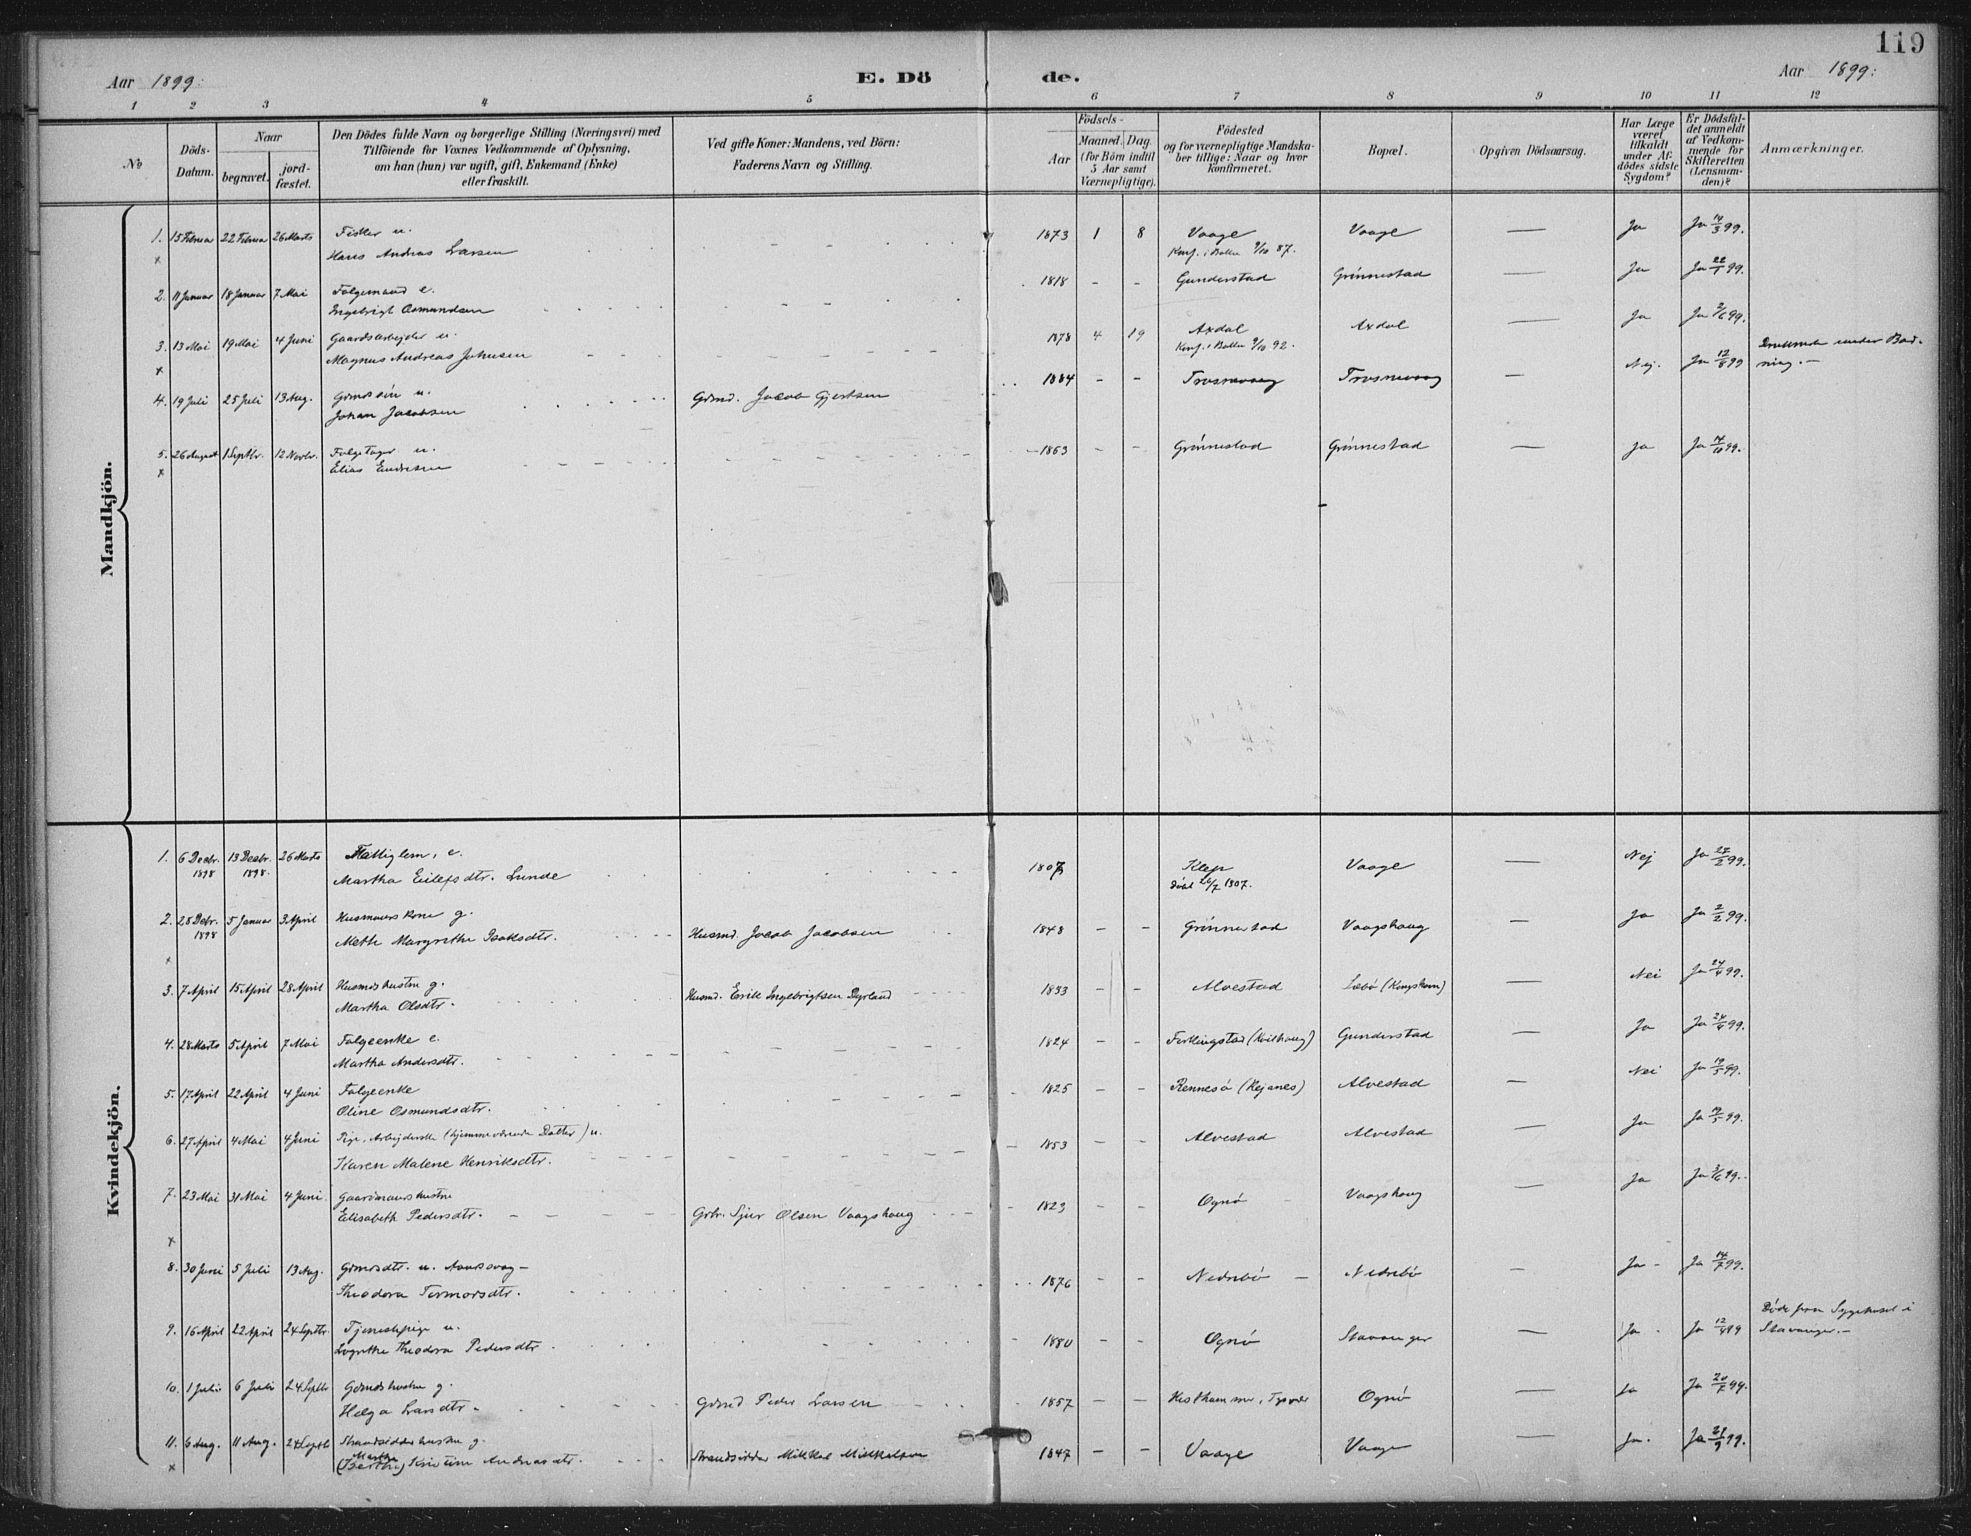 119
Aar 1899. E. Dö de. Aar 1899.
1 2 3 4 5 6 7 8 9 10 11 12
No
Döds-Datum.
Naar begravet. jordfæstet.
Den Dödes fulde Navn og borgerlige Stilling (Næringsvei) med
Tilföiende for Voxnes Vedkommende af Oplysning,
om han (hun) var ugift, gift, Enkemand (Enke)
eller fraskilt.
Ved gifte Koner: Mandens, ved Börn:
Faderens Navn og Stilling.
Födsels-
Aar Maaned. Dag
(for Börn indtil
5 Aar samt
Værnepligtige).
Födested
og for værnepligtige Mandska-
ber tillige: Naar og hvor
konfirmeret.
Bopæl.
Opgiven Dödsaarsag.
Har Læge
været
tilkaldt
under Af-
dödes sidste
Sygdom?
Er Dödsfal-
det anmeldt
af Vedkom-
mende for
Skifteretten
(Lensman-
den)?
Anmærkninger.
Mandkjön.
1. 15 Februar 22 Februar 26 Marts Fisker u. 1873 1 8 Vaage Vaage — Ja Ja 14/3 99.
x Hans Andreas Larsen Konf. i Bokn 9/10 87.
2. 11 Januar 18 Januar 7 Mai Folgemand e. 1818 - - Gunderstad Grönnestad — Ja Ja 22/1 99.
Ingebrigt Osmundsen
3. 13 Mai 19 Mai 4 Juni Gaardsarbejder u. 1878 4 19 Axdal Axdal — Ja Ja 2/6 99.
x Magnus Andreas Johnsen Konf. i Bokn 9/10 92.
4. 19 Juli 25 Juli 13 Aug. Grmdssön u. Grmd. Jacob Gjertsen 1884 - - Trosnavaag Trosnavaag — Nej. Ja 12/8 99 Druknede under Bad-
Johan Jacobsen ning. —
5. 26 August 1 Septbr. 12 Novbr. Folgetager u. 1863 - - Grönnestad Grönnestad — Ja Ja 14/10 99.
x Elias Endresen
Kvindekjön.
1. 6 Decbr. 13 Decbr. 26 Marts Fattiglem, e. 1807 Klep Vaage — Nej Ja 27/2 99.
1898 1898. Martha Eilefsdtr. Lunde döbt 26/7 1807.
2. 28 Debr. 5 Januar 3 April Husmanskone g. Husmd. Jacob Jacobsen 1848 - - Grönnestad Vaagshaug — Ja Ja 2/2 99.
1898 Mette Margrethe Isaksdtr.
x
3. 7 April 15 April 28 April Husmdshustru g. Husmd. Erik Ingebrigtsen Dyrland 1833 - - Alvestad Læbö (Kongshavn) Nei Ja 24/4 99.
Martha Olsdtr.
4. 28 Marts 5 April 7 Mai Folgeenke e. 1824 - - Ferkingstad (Kvilhaug) Gunderstad — Ja Ja 24/4 99.
Martha Andersdtr.
5. 17 April 22 April 4 Juni Folgeenke 1825 - - Rennesö (Rejanes) Alvestad — Nei Ja 19/5 99.
Oline Osmundsdtr.
6. 27 April 4 Mai 4 Juni Pige, Arbejderske (hjemmeværende Datter) u. 1853 - - Alvestad Alvestad — Ja Ja 19/5 99.
Karen Malene Henriksdtr.
7. 23 Mai 31 Mai 4 Juni. Gaardmanshustru Grbr. Sjur Olsen Vaagshaug 1823 - - Ognö Vaagshaug — Ja Ja 3/6 99.
Elisabeth Pedersdtr.
x
8. 30 Juni 5 Juli 13 Aug. Grmdsdtr. u. Aandssvag — 1876 - - Nedrebö — Nedrebö — Ja Ja 14/7 99.
Theodora Tormodsdtr.
9. 16 April 22 April 24 Septbr. Tjenestepige u. 1880 Ognö Stavanger — Ja Ja 12/4 99 Döde paa Sygehuset i
Theodora Pedersdtr Stavanger. —
10. 1 Juli 6 Juli 24 Septbr Grmdshustru g. Grmd Peder Larsen 1857 - - Tysvær Ognö — Ja Ja 20/7 99.
Helga Larsdtr.
11. 6 Aug. 11 Aug. 24 Septbr Strandsidderhustru g. Strandsidder Mikkel Mikkelsen 1847 - - Vaage Vaage — Ja. Ja 21/9 99.
Martha
x (Berthe) Kristine Andreasdtr.